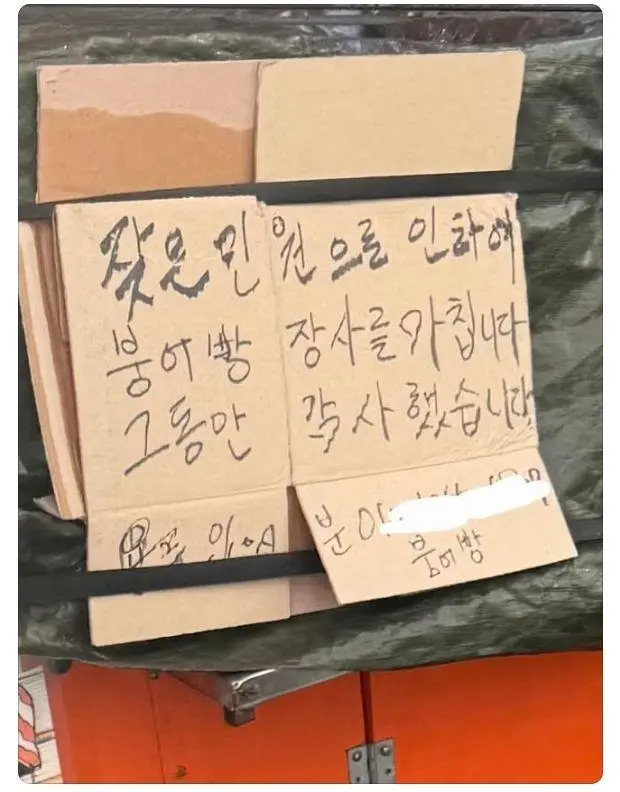 잦은민원으로 인하여
붕어빵 장사를 마칩니다
그동안 감사했습니다
분
붕어빵